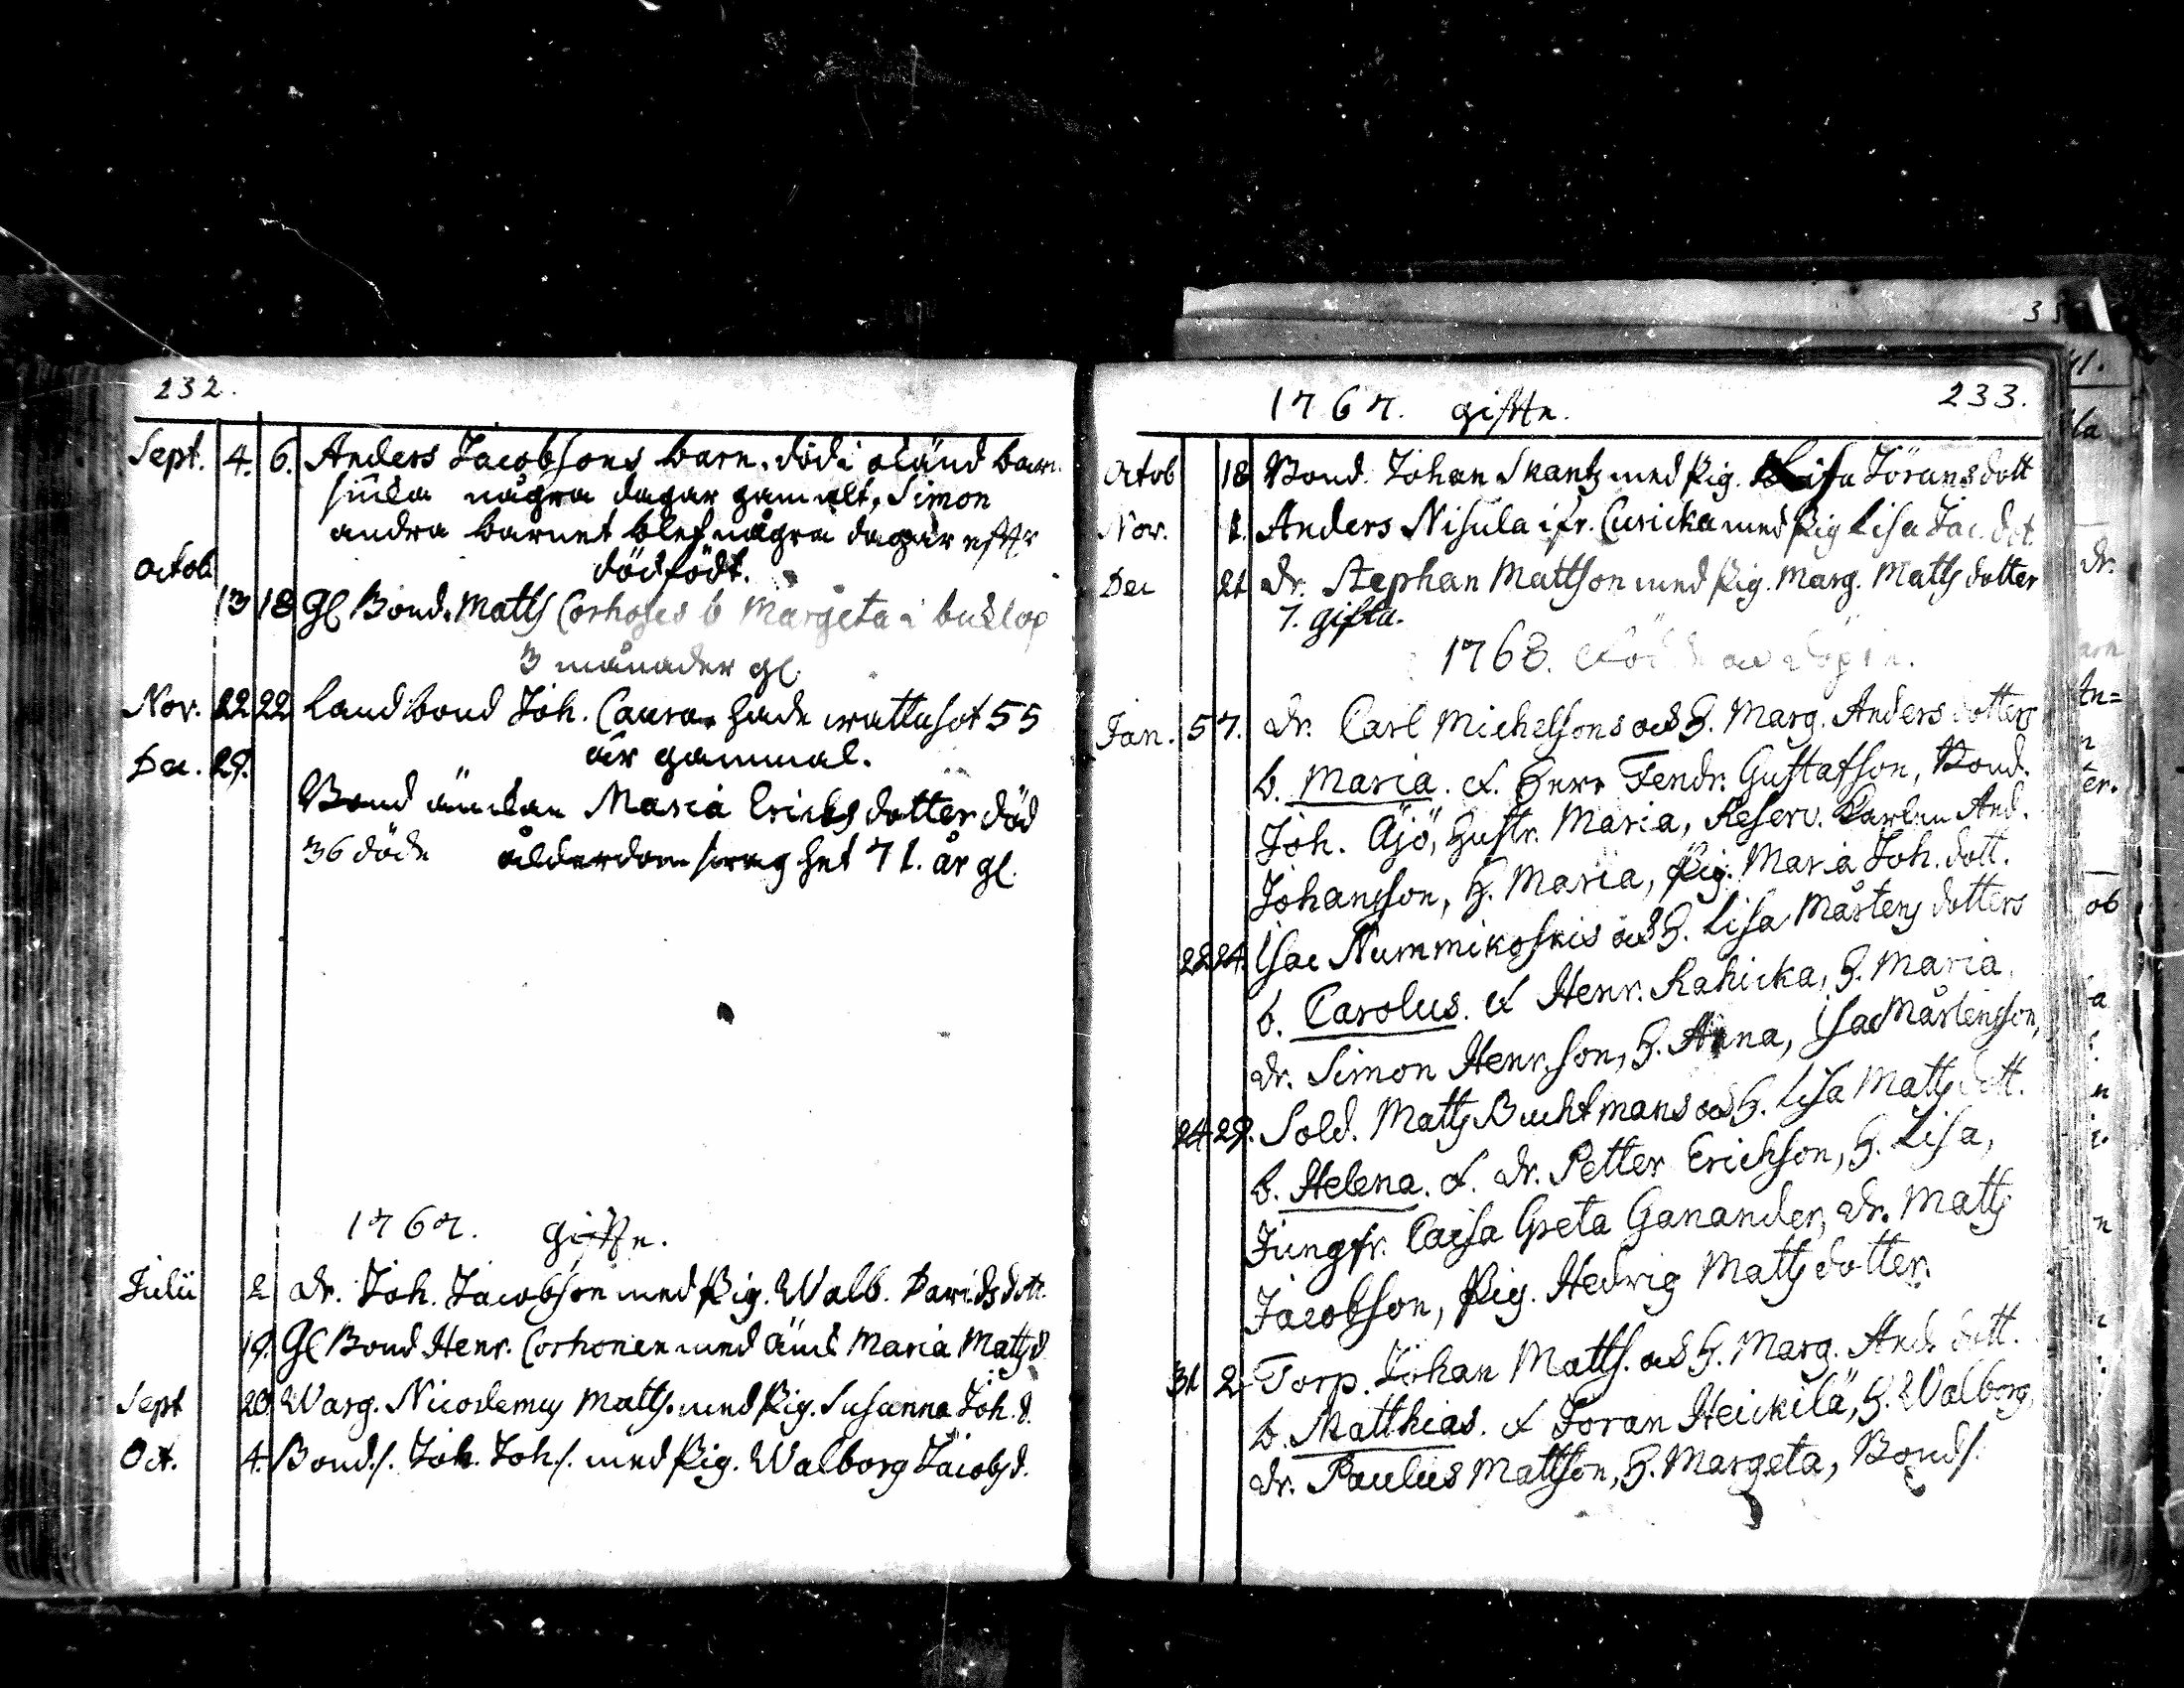 232.
Sept. 4. 6. Anders Jacobsons barn. död i okänd barn
siuka några dagar gamalt, Simon
andra barnet blef några dagar efter
dödfödt.
Octob.
13 18 Gl Bond. Matts Corhoses b Margeta i buklop
3 månader gl.
Nov. 22 22 Landbond Joh. Caura hade wattusot 55
år gammal.
Dec. 29.
Bond änckan Maria Ericks dotter död
36 döde ålderdoms swaghet 71. år gl.
1767. gifte.
Julii 2 dr. Joh. Jacobson med Pig. Walb. Davids dott.
19. Gl Bond Henr. Corhonen med änck Maria Matsd.
Sept 20 Warg. Nicodemus Matts. med Pig. Susanna Joh. d.
Oct. 4. Bonds. Joh. Joh s. med Pig. Walborg Jacobsd.
1767. gifte. 233.
Octob 18 Bond. Johan Skantz med Pig. Lisa Jörans dott
Nov. 1. Anders Nisula ifr. Curicka med Pig Lisa Jac. dot
Dec 21 dr. Stephan Mattson med Pig. Marg. Matts dotter
7. gifta.
1768.
Jan. 5 7. dr. Carl Michelsons och H. Marg. Anders dotters
b. Maria. t. Henr Fendr. Gustafson, Bond.
Joh. Äjö, Hustr. Maria, Reserv. Karlen And.
Johansson, H. Maria, Pig. Maria Joh. dott.
22 24. Isac Nummikoskis och H. Lisa Mårtens dotters
b. Carolus. t Henr. Rahicka, H. Maria,
dr. Simon Henr.son, H. Anna, Isac Mårtensson,
24 29. Sold. Matts Buchtmans och H. Lisa Matts dott.
b. Helena. t. dr. Petter Erichson, H. Lisa,
Jungfr. Caisa Greta Ganander, dr. Matts
Jacobson, Pig. Hedvig Matts dotter.
31 2. Torp. Johan Matts. och H. Marg. And. dott.
b. Matthias. t Joran Heickilä, H. Walborg,
dr. Paulus Mattson, H. Margeta, Bonds.